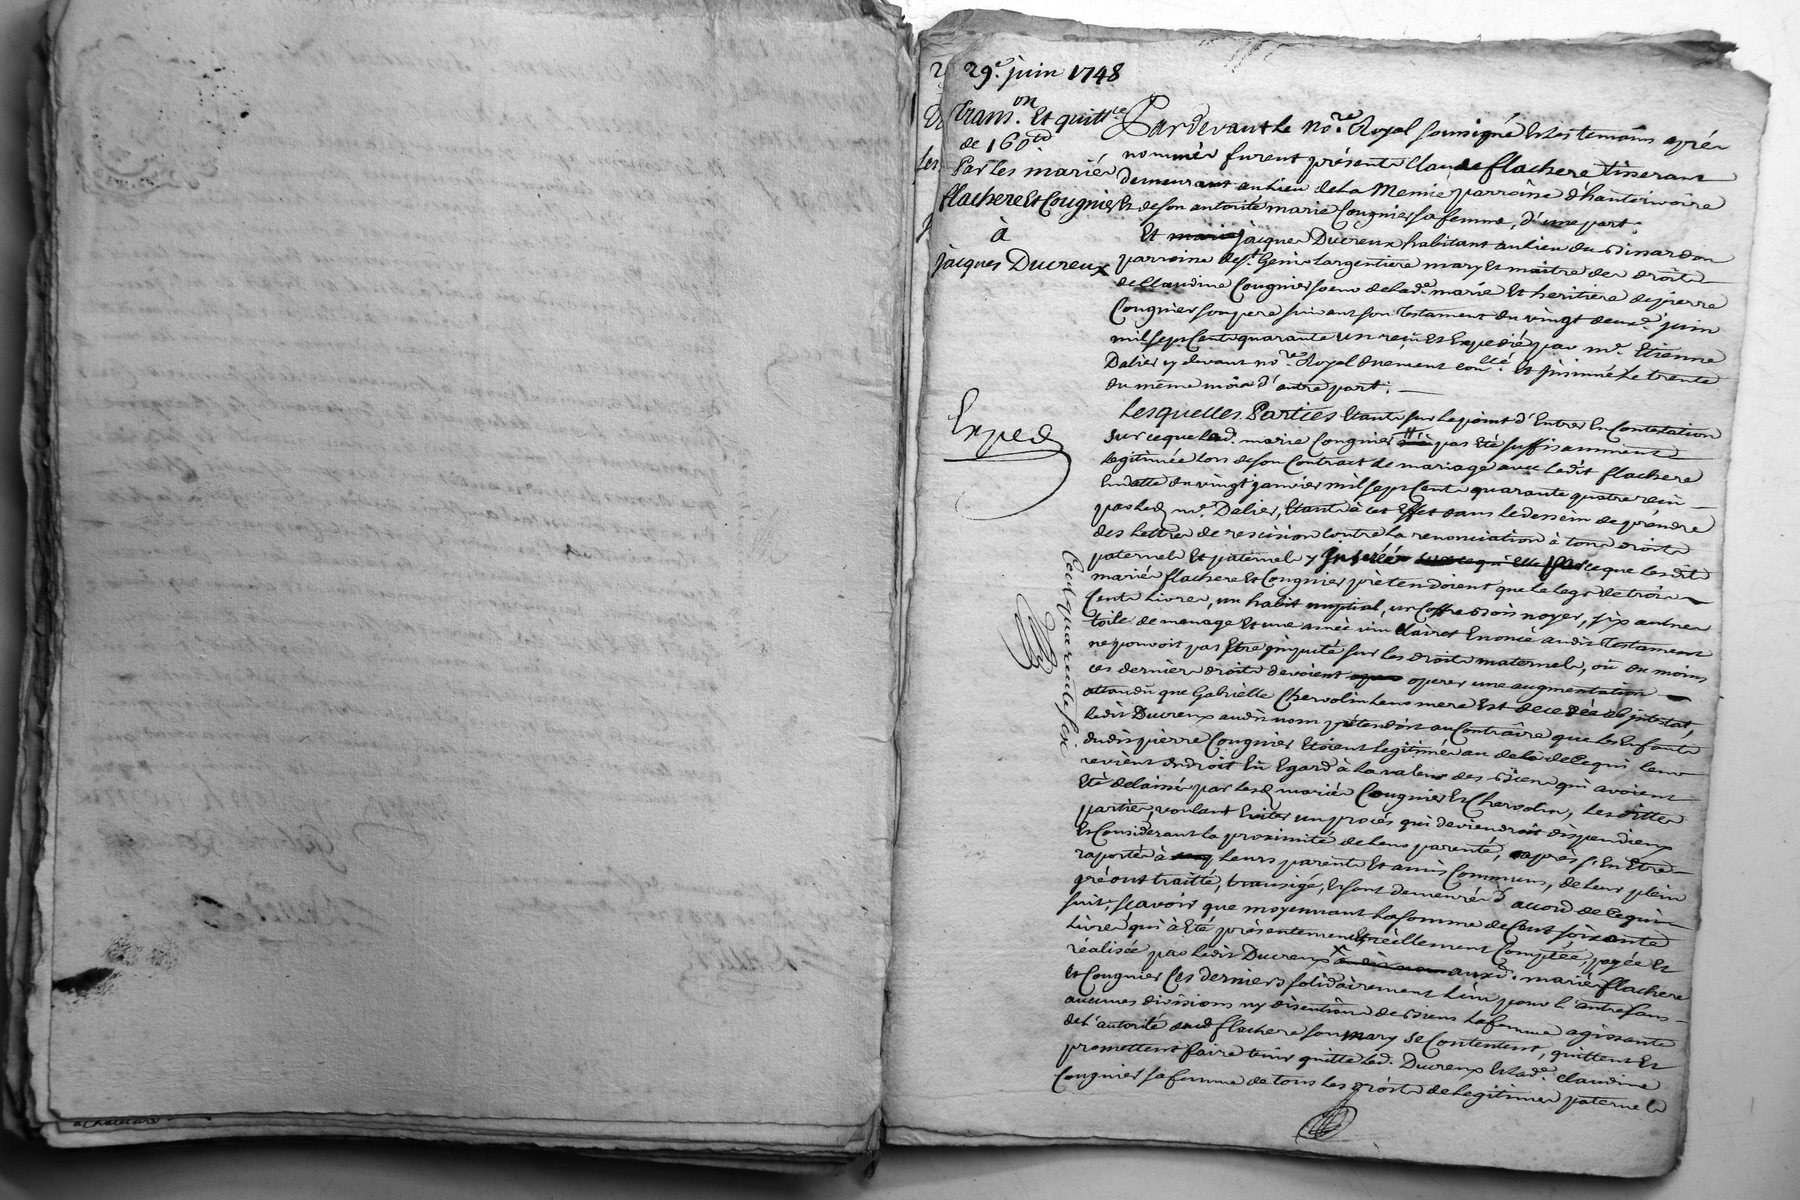 29e. juin 1748
Transon. Et quittce
de 160 ld
Par Les mariés
flachere Et Cougnier
à
jacques Ducreux
Exped
Cent quarante six
Pardevant Le nore. Royal soussigné Et les temoins après
nommés furent présents Claude flachere tisserant
demeurant au lieu de La Memie parroisse d'hauterivoire
Et de son autorité marie Cougnier sa femme, d'une part;
Et marie jacques Ducreux habitant au lieu du Binardon
parroisse de st. Genis Largentiere mary Et maître des droits
de Claudine Cougnier soeur de Lade. marie Et heritiere de pierre
Cougnier son pere suivant son Testament du vingt deuxe. juin
mil sept Cents quarante un reçu Et Expedié par me. Etienne
Dalier cy devant nore. Royal duement conllé. Et insinué Le trente
du même mois d'autre part;
Lesquelles Parties Etants sur Le point d'Entrer En Contestation
sur ce que Lad. marie Cougnier pas Eté suffisamment
Legitimée Lors de son Contract de mariage avec Ledit flachere
En datte du vingt janvier mil sept Cents quarante quatre reçu
par Led. me. Dalier, Etants à cet Effet dans le dessein de prendre
des Lettres de rescision Contre La renonciation à tous droits
paternels Et paternels y Inserée parce que Lesdits
mariés flachere Et Cougnier prétendoient que Le Legs de trois
Cents Livres, un habit nuptial, un Coffre Bois noyer, six aulnes
toile de menage Et une année vin Clairet Enoncé audit Testament
ne pouvoit pas Etre imputé sur Les droits maternels, où du moins
ces derniers droits devoient operer une augmentation
attandu que Gabrielle Chervolin Leur mere Est decedée ab intestat,
Ledit Ducreux audit nom prétendoit au Contraire que Les Enfants
dudit pierre Cougnier Etoient Legitimés au dela de ce qui Leur
revient de droit Eu Egard à La valeur des Biens qui avoient
Eté delaissés par Lesd. mariés Cougnier Et Chervolin, Lesdittes
parties, voulant Eviter un procès qui deviendroit dispendieux
Et Considerant La proximité de Leurs parenté, après s'En Etre
raportés à Leurs parents Et amis Communs, de Leur plein
gré ont traitté, transigé, Et sont demeurés d'accord de ce qui
suit, sçavoir que moyennant La somme de Cent soixante
Livres qui à Eté présentement Et réellement Comptée, payée Et
réalisée par Ledit Ducreux x auxd. mariés flachere
Et Cougnier Ces derniers solidairement L'un pour L'autre sans
aucunes divisions ny discution de Biens La femme agissante
de L'autorité dud. flachere son mary se Contentent, quittent Et
promettent faire tenir quitte Led. Ducreux Et Lade. Claudine
Cougnier sa femme de tous Les droits de Legitimes paternels